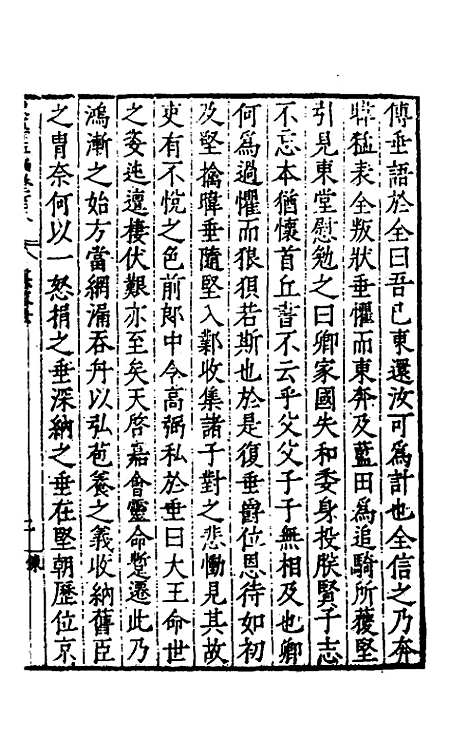 傳垂語於全曰吾已東還汝可爲計也全信之乃奔
暐猛表全叛狀垂懼而東奔及藍田爲追騎所獲堅
引見東堂慰勉之曰卿家國失和委身投朕賢子志
不忘本猶懷首丘書不云乎父父子子無相及也卿
何爲過懼而狼狽若斯也於是復垂爵位恩待如初
及堅擒暐垂隨堅入鄴收集諸子對之悲慟見其故
吏有不悅之色前郎中令高弼私於垂曰大王命世
之姿迍邅棲伏艱亦至矣天啓嘉會靈命蹔遷此乃
鴻漸之始方當網漏吞舟以弘苞養之義收納舊臣
之胄奈何以一怒捐之垂深納之垂在堅朝歷位京